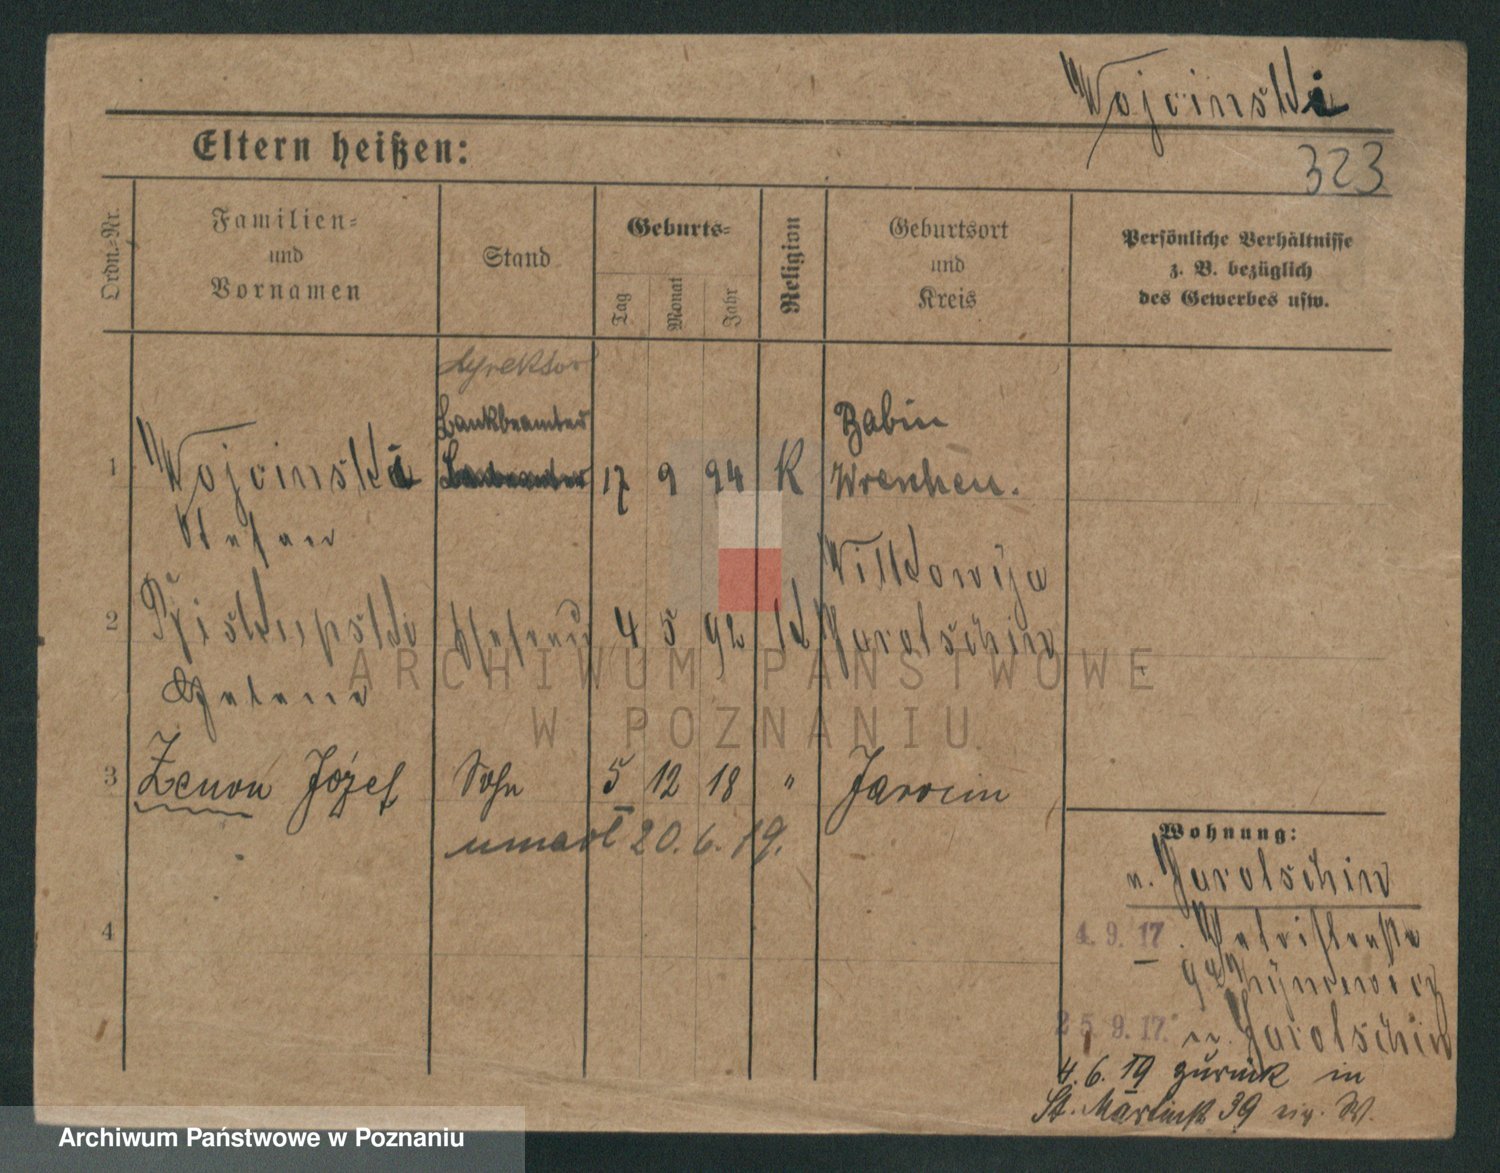 Wojcinski
Eltern heißen:
323
Ordn.=Nr.
Familien=
und
Vornamen
Stand
Geburts=
Tag
Monat
Jahr
Religion
Geburtsort
und
Kreis
Persönliche Verhältnisse
z. B. bezüglich
des Gewerbes usw.
dyrektor
Bankbeamter
1 Wojcinski 17 9 94 K
Zabin
Wreschen.
Stefan
2 Ehefrau 4 5 92 K
Witkowija
Jarotschin
Helene
3 Zenon Józef Sohn 5 12 18 " Jarocin
umarł 20. 6. 19.
4
Wohnung:
n. Jarotschin
4. 9. 17
25. 9. 17. Jarotschin
4. 6. 19 zurück in
St. Martinstr 39 W.
ARCHIWUM PAŃSTWOWE
W POZNANIU
Archiwum Państwowe w Poznaniu